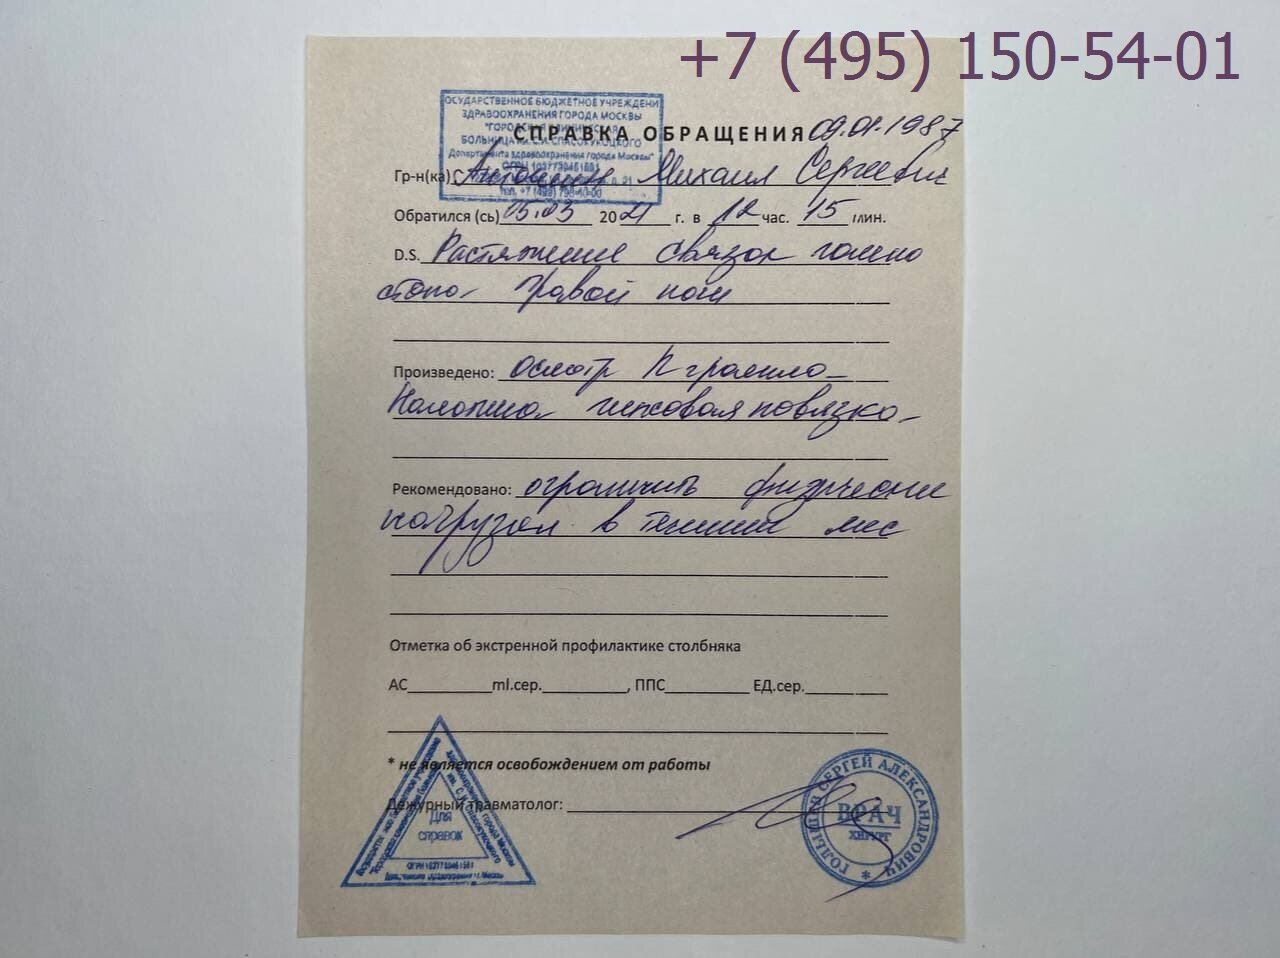 +7 (495) 150-54-01
ОСУДАРСТВЕННОЕ БЮДЖЕТНОЕ УЧРЕЖДЕНИ
ЗДРАВООХРАНЕНИЯ ГОРОДА МОСКВЫ
"ГОРОДСКАЯ КЛИНИЧЕСКАЯ
БОЛЬНИЦА ИМ. С.И. СПАСОКУКОЦКОГО
Департамента здравоохранения города Москвы"
СПРАВКА ОБРАЩЕНИЯ 09.01.1987
Гр-н(ка) Михаил Сергеевич
Обратился (сь) 05.03 2021 г. в 12 час. 15 мин.
D.S. Растяжение связок голено
стопа правой ноги
Произведено: осмотр
Наложена гипсовая повязка
Рекомендовано: ограничить физические
нагрузки в течении мес
Отметка об экстренной профилактике столбняка
АС ml.сер. , ППС ЕД.сер.
* не является освобождением от работы
Дежурный травматолог:
Для
справок
СЕРГЕЙ АЛЕКСАНДРОВИЧ
ВРАЧ
ХИРУРГ